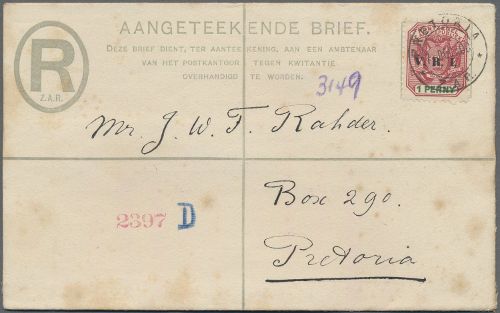 AANGETEEKENDE BRIEF.
DEZE BRIEF DIENT, TER AANTEEKENING, AAN EEN AMBTENAAR
VAN HET POSTKANTOOR TEGEN KWITANTIE
OVERHANDIGD TE WORDEN.
R
Z.A.R.
V. R. I.
1 PENNY
3149
Mr. J. W. F. Rahder.
Box 290.
Pretoria
2397 D